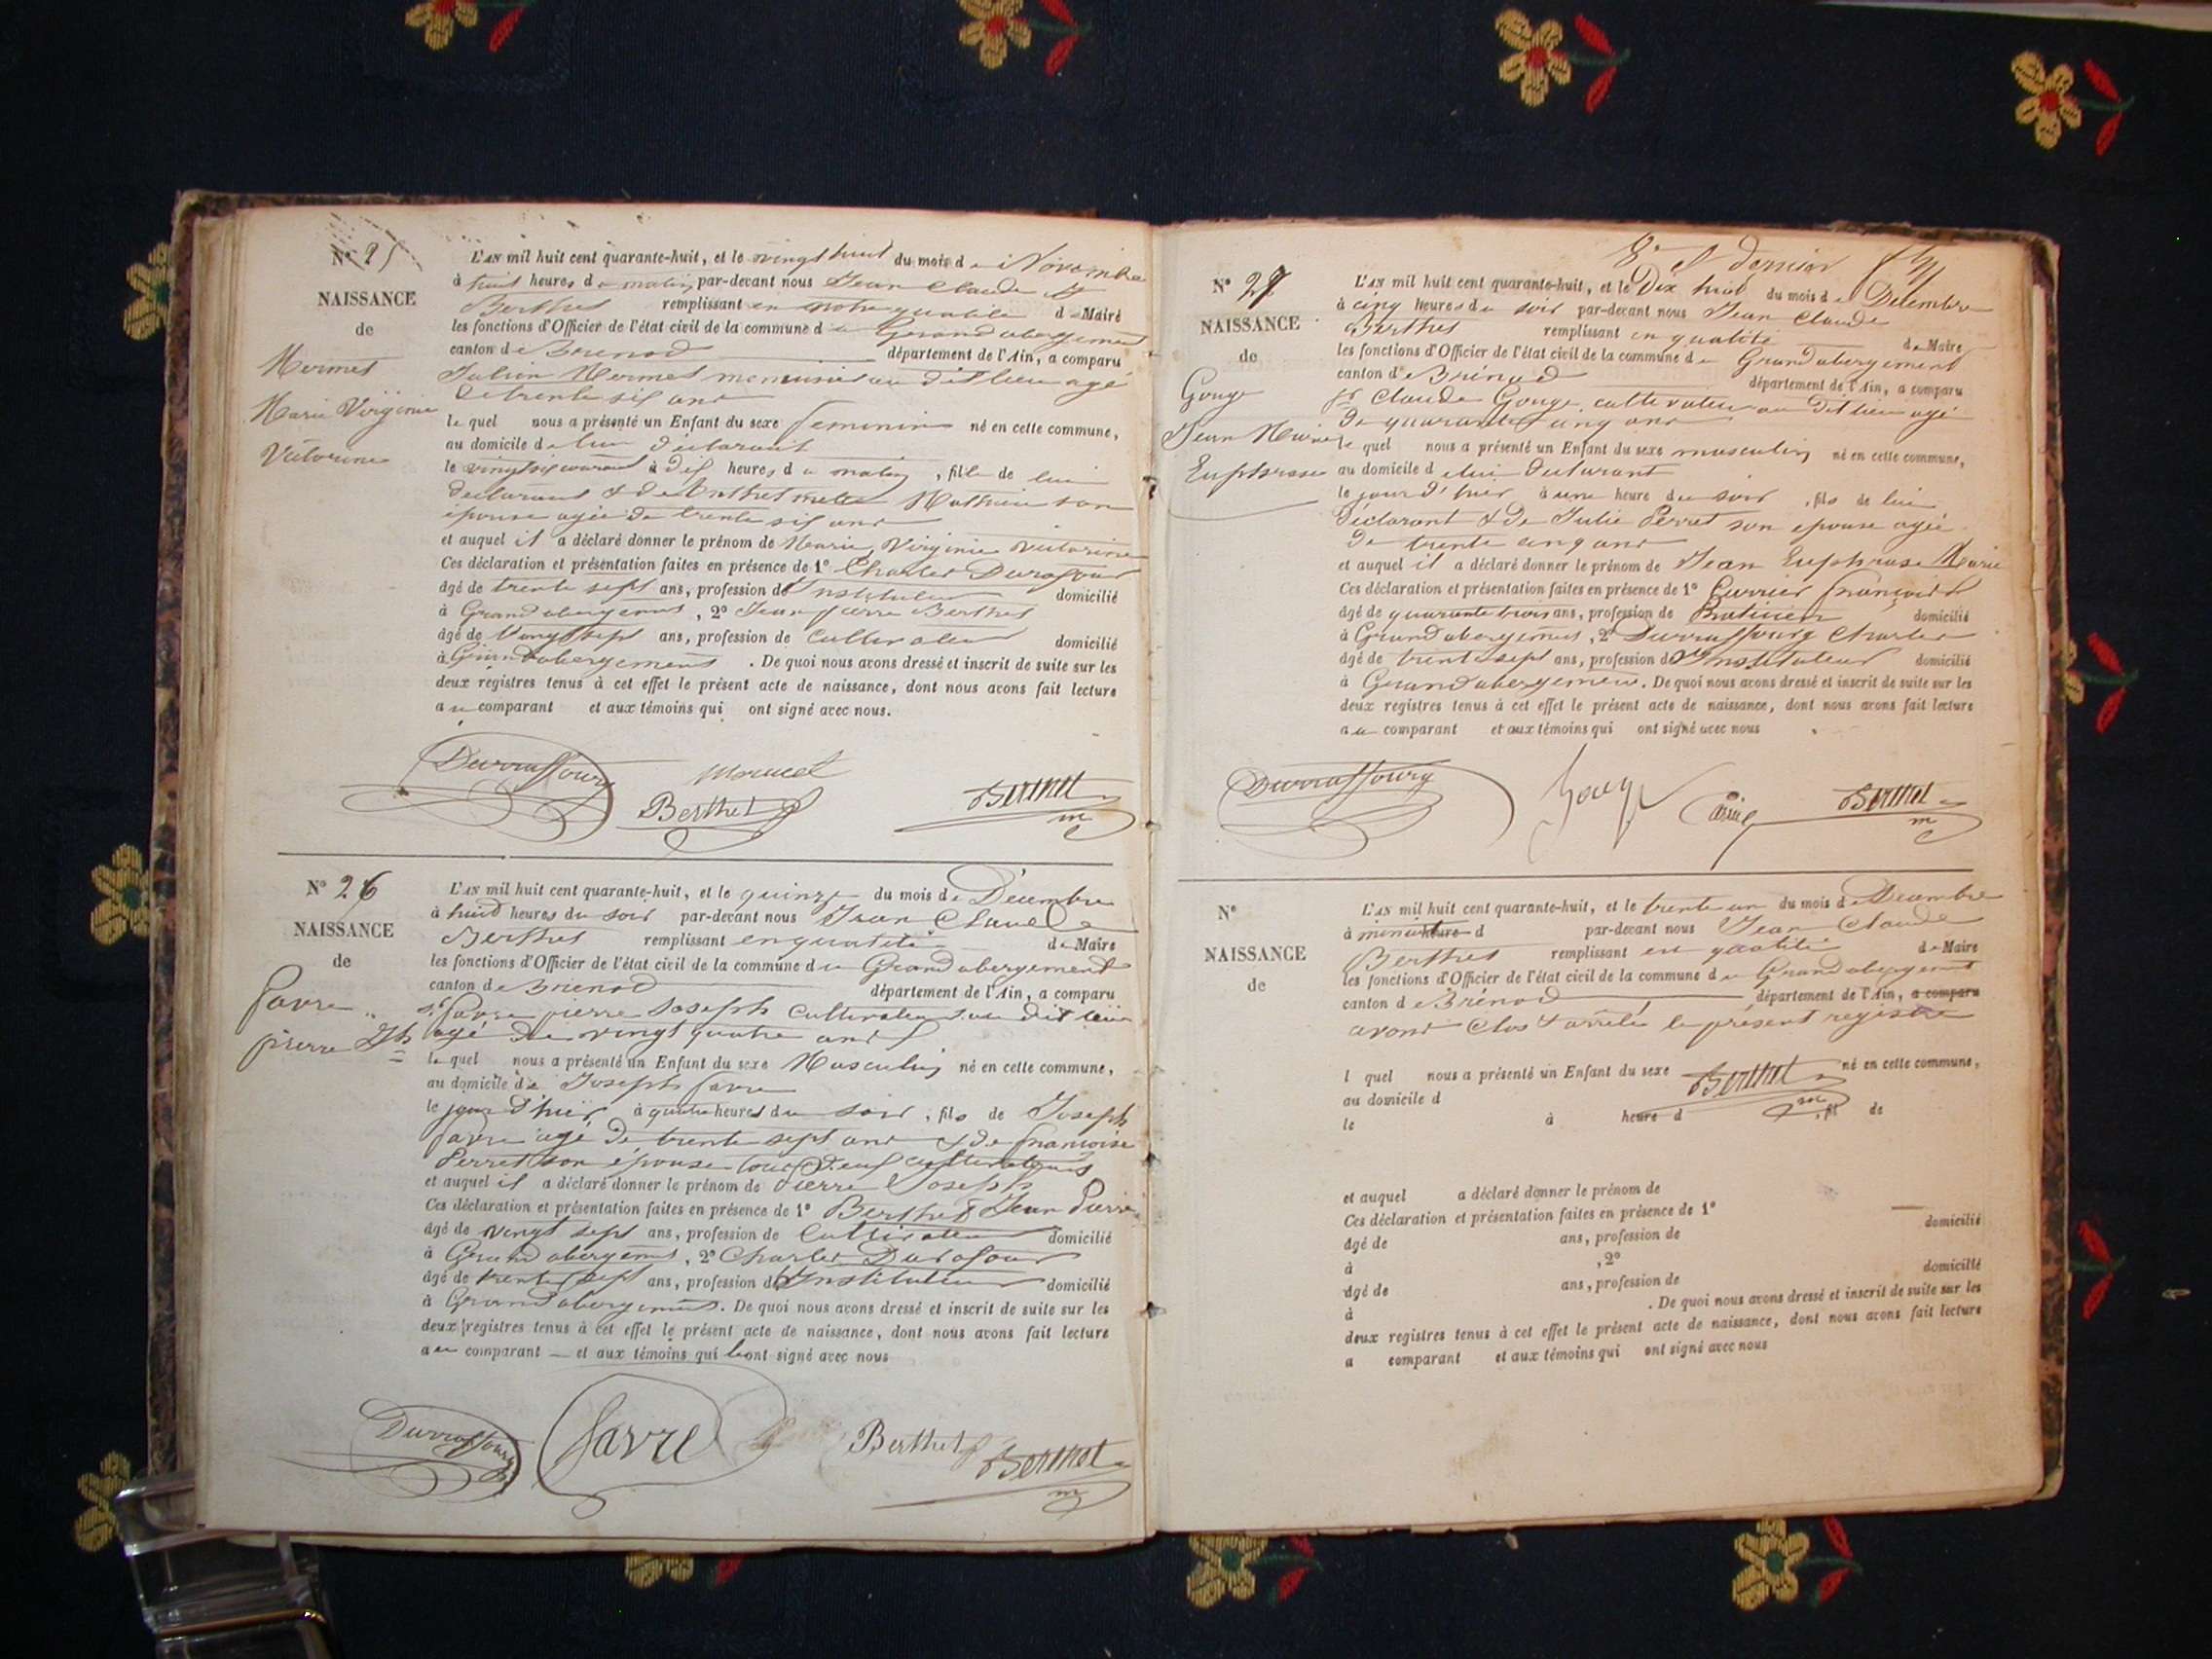 N° 25
NAISSANCE
de
Mermet
Marie Virginie
Victorine
L'AN mil huit cent quarante-huit, et le vingt huit du mois de Novembre
à huit heures du matin par-devant nous Jean Claude
Berthet remplissant en notre qualité de Maire
les fonctions d'Officier de l'état civil de la commune du Grand abergement
canton de Brenod département de l'Ain, a comparu
Julien Mermet menuisier au dit lieu agé
de trente six ans
le quel nous a présenté un Enfant du sexe feminin né en cette commune,
au domicile de lui déclarant
le vingt six courant à dix heures du matin, fille de lui
declarant & de Mathieu son
épouse agée de trente six ans
et auquel il a déclaré donner le prénom de Marie Virginie Victorine
Ces déclaration et présentation faites en présence de 1° Charles Durafour
âgé de trente sept ans, profession d'Instituteur domicilié
à Grand abergement, 2° Jean pierre Berthet
âgé de vingt sept ans, profession de Cultivateur domicilié
à Grand abergement. De quoi nous avons dressé et inscrit de suite sur les
deux registres tenus à cet effet le présent acte de naissance, dont nous avons fait lecture
au comparant et aux témoins qui ont signé avec nous.
Durraffourg
Berthet Berthet
m
N° 26
NAISSANCE
de
favre
pierre Jh
L'AN mil huit cent quarante-huit, et le quinze du mois de Décembre
à huit heures du soir par-devant nous Jean Claude
Berthet remplissant en qualité de Maire
les fonctions d'Officier de l'état civil de la commune du Grand abergement
canton de Brenod département de l'Ain, a comparu
sr favre pierre Joseph Cultivateur au dit lieu
agé de vingt quatre ans
le quel nous a présenté un Enfant du sexe Masculin né en cette commune,
au domicile de Joseph favre
le jour d'hier à quatre heures du soir, fils de Joseph
favre agé de trente sept ans & de françoise
Perret son épouse tous deux cultivateurs
et auquel il a déclaré donner le prénom de Pierre Joseph
Ces déclaration et présentation faites en présence de 1° Berthet Jean Pierre
âgé de vingt sept ans, profession de Cultivateur domicilié
à Grand abergement, 2° Charles Durafour
âgé de trente sept ans, profession d'Instituteur domicilié
à Grand abergement. De quoi nous avons dressé et inscrit de suite sur les
deux registres tenus à cet effet le présent acte de naissance, dont nous avons fait lecture
au comparant et aux témoins qui ont signé avec nous
Durraffourg favre Berthet Berthet
m
8e et dernier
N° 27
NAISSANCE
de
Gouge
Jean Marie
Euphrase
L'AN mil huit cent quarante-huit, et le Dix huit du mois de Décembre
à cinq heures du soir par-devant nous Jean Claude
Berthet remplissant en qualité de Maire
les fonctions d'Officier de l'état civil de la commune du Grand abergement
canton de Brénod département de l'Ain, a comparu
sr Claude Gouge cultivateur au dit lieu agé
de quarante cinq ans
le quel nous a présenté un Enfant du sexe masculin né en cette commune,
au domicile de lui declarant
le jour d'hier à une heure du soir, fils de lui
déclarant & de Julie Perret son epouse agée
de trente cinq ans
et auquel il a déclaré donner le prénom de Jean Euphrase Marie
Ces déclaration et présentation faites en présence de 1° Carrier françois
âgé de quarante trois ans, profession de Praticien domicilié
à Grand abergement, 2° Durraffourg Charles
âgé de trente sept ans, profession d'Instituteur domicilié
à Grand abergement. De quoi nous avons dressé et inscrit de suite sur les
deux registres tenus à cet effet le présent acte de naissance, dont nous avons fait lecture
au comparant et aux témoins qui ont signé avec nous
Durraffourg Gouge Berthet
m
N°
NAISSANCE
de
L'AN mil huit cent quarante-huit, et le trente un du mois de Decembre
à minuit heure d par-devant nous Jean Claude
Berthet remplissant en qualité de Maire
les fonctions d'Officier de l'état civil de la commune du Grand abergement
canton de Brénod département de l'Ain, a comparu
avons Clos & arrêté le présent registre
l quel nous a présenté un Enfant du sexe né en cette commune,
Berthet
m
au domicile d
le à heure d , fil de
et auquel a déclaré donner le prénom de
Ces déclaration et présentation faites en présence de 1°
âgé de ans, profession de domicilié
à , 2°
âgé de ans, profession de domicilié
à . De quoi nous avons dressé et inscrit de suite sur les
deux registres tenus à cet effet le présent acte de naissance, dont nous avons fait lecture
a comparant et aux témoins qui ont signé avec nous